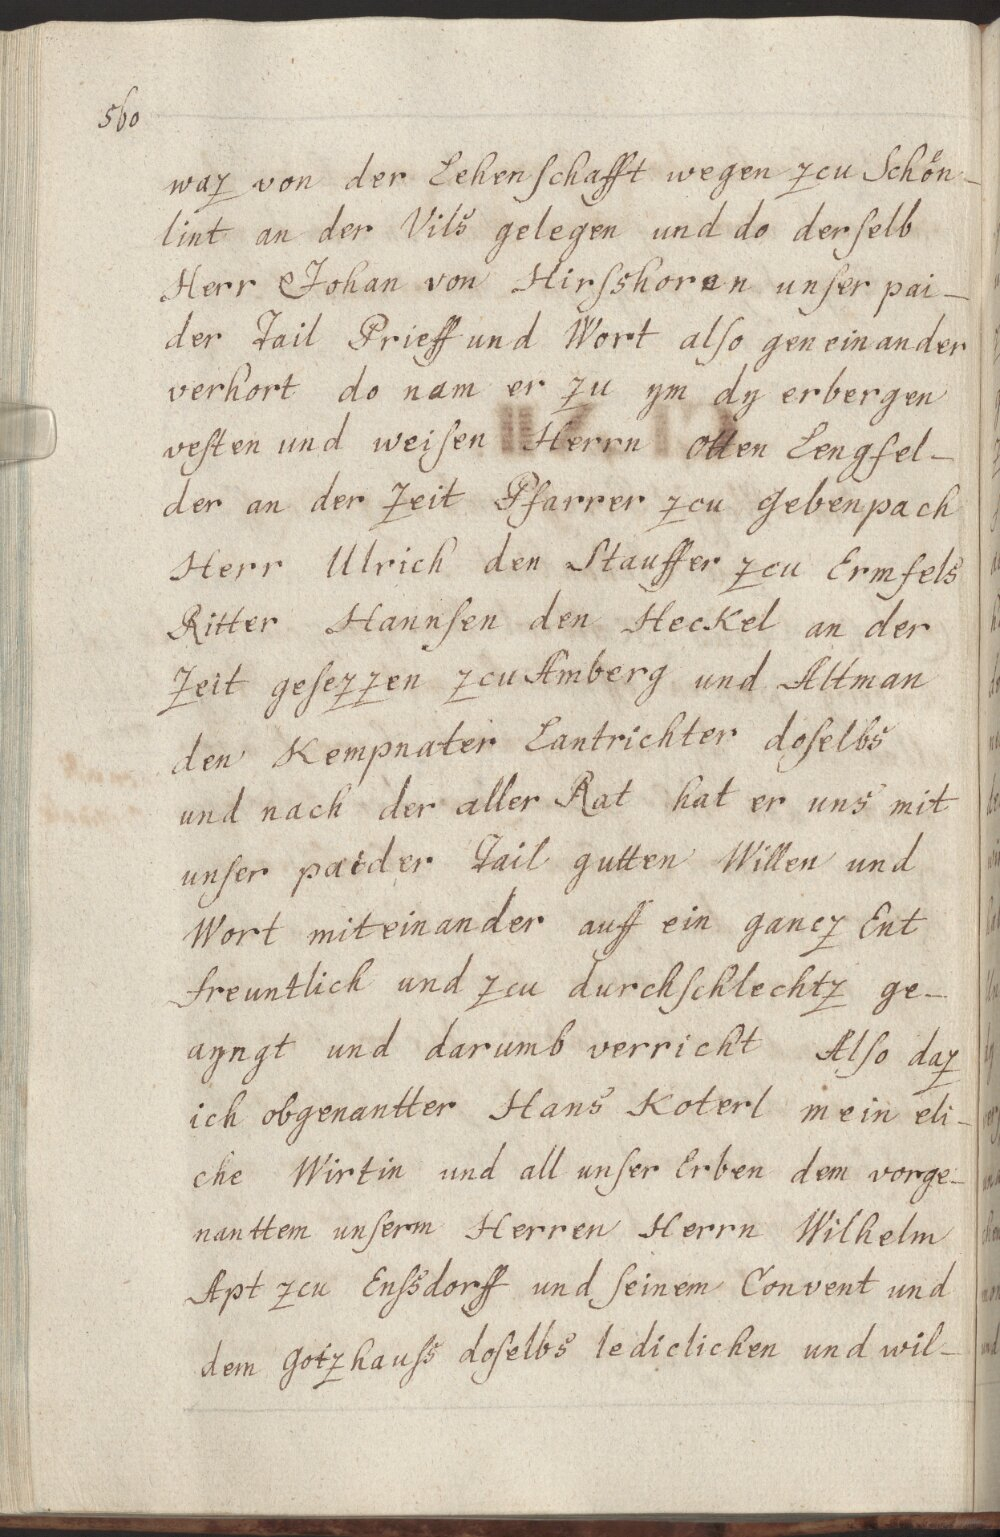 560
waz von der Lehenschafft wegen zcu Schön-
lint an der Vils gelegen und do derselb
Herr Johan von Hirsshoren unser pai-
der Tail Prieff und Wort also geneinander
verhort do nam er zu ym dy erbergen
vesten und weisen Herrn Otten Lengfel-
der an der Zeit Pfarrer zcu Gebenpach
Herr Ulrich den Stauffer zcu Ermfels
Ritter Hannsen den Heckel an der
Zeit gesezzen zcu Amberg und Altman
den Kempnater Lantrichter doselbs
und nach der aller Rat hat er uns mit
unser paider Tail gutten Willen und
Wort miteinander auff ein gancz Ent
freuntlich und zcu durchschlechtz ge-
ayngt und darumb verricht Also daz
ich obgenantter Hans Koterl mein eli-
che Wirtin und all unser Erben dem vorge-
nanttem unserm Herren Herrn Wilhelm
Apt zcu Enssdorff und seinem Convent und
dem Gotzhauss doselbs lediclichen und wil-